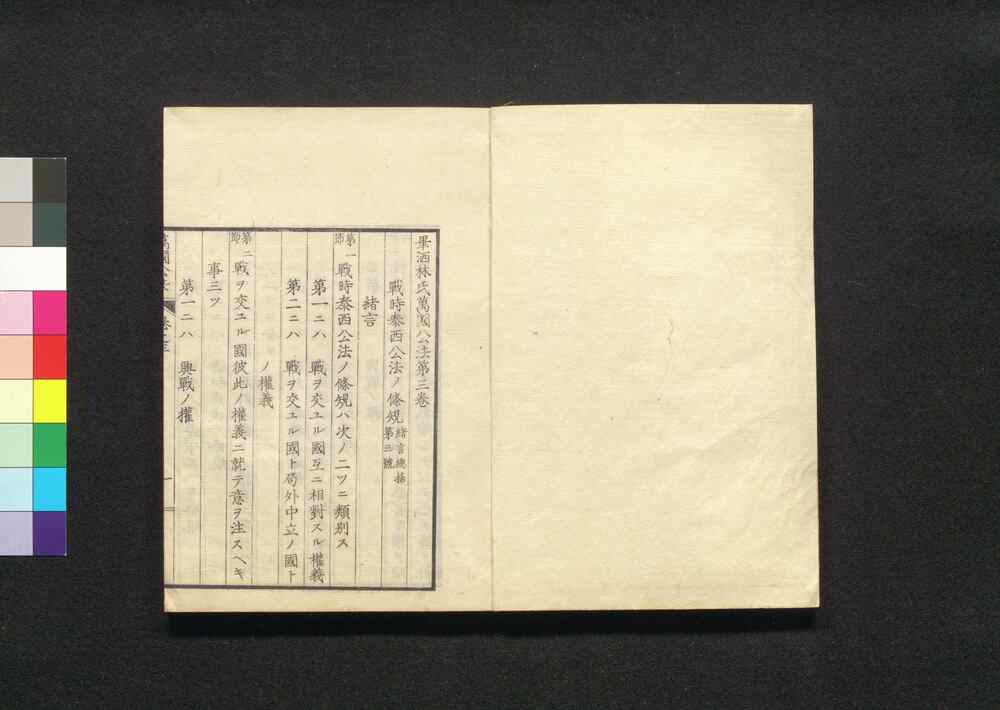 畢洒林氏萬國公法第三卷
戰時泰西公法ノ條規 緒言總括第三號
緒言
第一節 戰時泰西公法ノ條規ハ次ノ二ツニ類別ス
第一ニハ 戰ヲ交ユル國互ニ相對スル權義
第二ニハ 戰ヲ交ユル國ト局外中立ノ國ト
ノ權義
第二節 戰ヲ交ユル國彼此ノ權義ニ就テ意ヲ注スヘキ
事三ツ
第一ニハ 興戰ノ權
萬國公法 卷之三 一